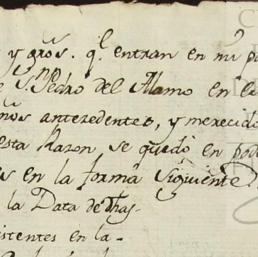 y gros. q.e entran en mi po
S.n Pedro del Alamo en la
años antecedentes, y merecido
esta Razon se quedo en pod
es en la forma Siguiente
la Data de dhas
istentes en la-